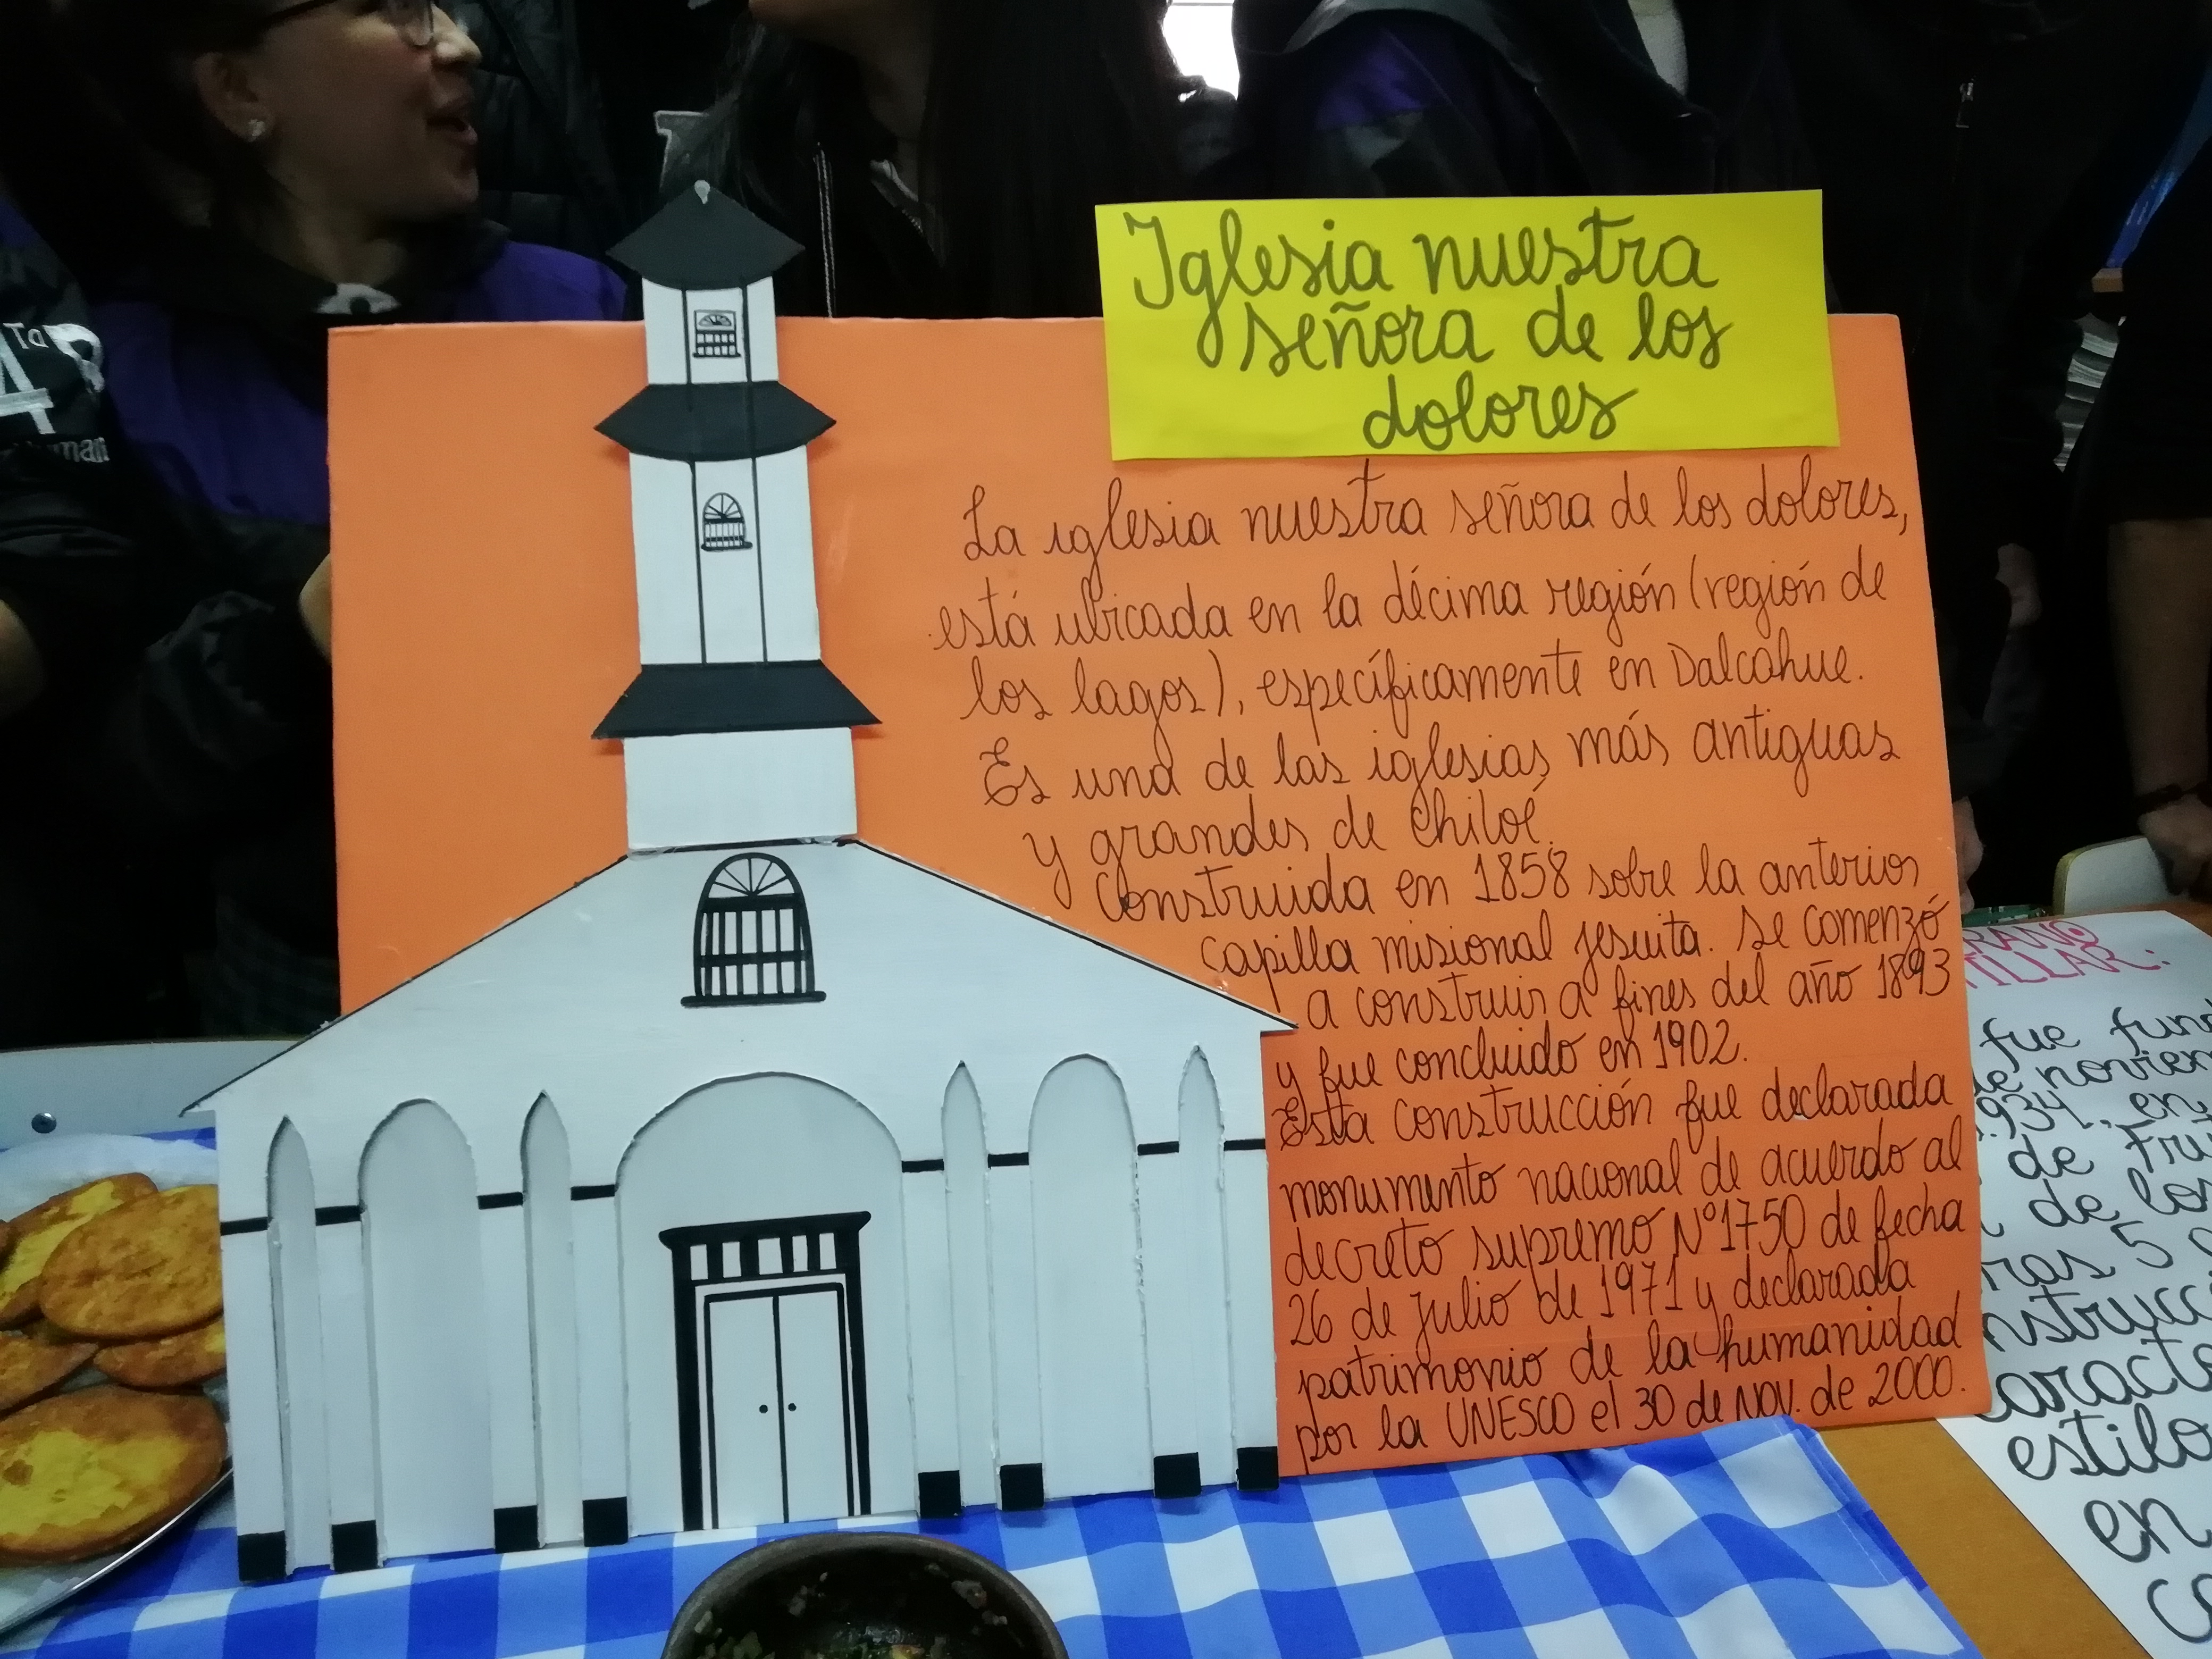 Iglesia nuestra
señora de los
dolores
La iglesia nuestra señora de los dolores,
está ubicada en la décima región (región de
los lagos), específicamente en Dalcahue.
Es una de las iglesias más antiguas
y grandes de Chiloé.
Construida en 1858 sobre la anterior
capilla misional jesuita. se comenzó
a construir a fines del año 1893
y fue concluido en 1902.
Esta construcción fue declarada
monumento nacional de acuerdo al
decreto supremo Nº1750 de fecha
26 de julio de 1971 y declarada
patrimonio de la humanidad
por la UNESCO el 30 de NOV. de 2000.
fue
en
de
de los
5
estilo
en
4to